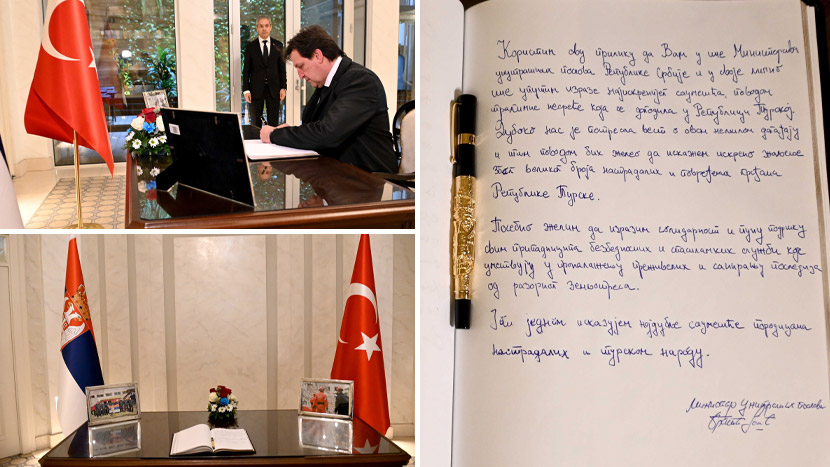 Користим ову прилику да Вам у име Министарства
унутрашњих послова Републике Србије и у своје лично
име упутим изразе најискренијег саучешћа поводом
трагичне несреће која се догодила у Републици Турској.
Дубоко нас је потресла вест о овом немилом догађају
и тим поводом бих желео да искажем искрено жаљење
због великог броја настрадалих и повређених грађана
Републике Турске.
Посебно желим да изразим солидарност и пуну подршку
свим припадницима безбедносних и спасилачких служби које
учествују у проналажењу преживелих и санирању последица
од разорног земљотреса.
Још једном исказујем најдубље саучешће породицама
настрадалих и турском народу.
Министар унутрашњих послова